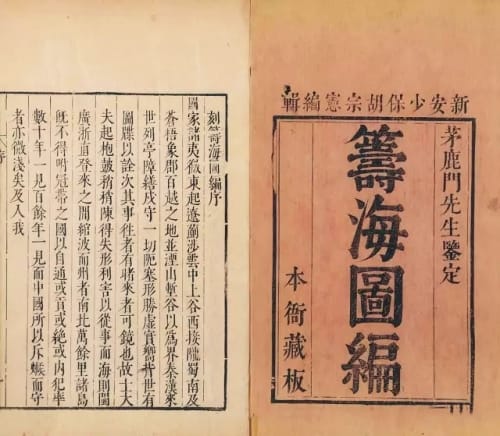 新安少保胡宗憲編輯
茅鹿門先生鑒定
籌海圖編
本衙藏板
刻籌海圖編序
國家諸夷徼東起遼薊涉雲中上谷西接隴蜀南及
蒼梧象郡百越之地並湮山塹谷以為界秦漢來
世列亭障繕戍守一切阨塞形勝虛實嚮背世有
圖牒以詮次其事往者有睹來者可鏡也故士大
夫起枹鼓陳得失形利害以從事而海則閩
廣浙直登來之間綰波而州者南北萬餘里諸島
既不得附冠帶之國以自通或貢或絕或內犯率
數十年一見百餘年一見而中國所以斥堠而守
者亦微淺矣及人我